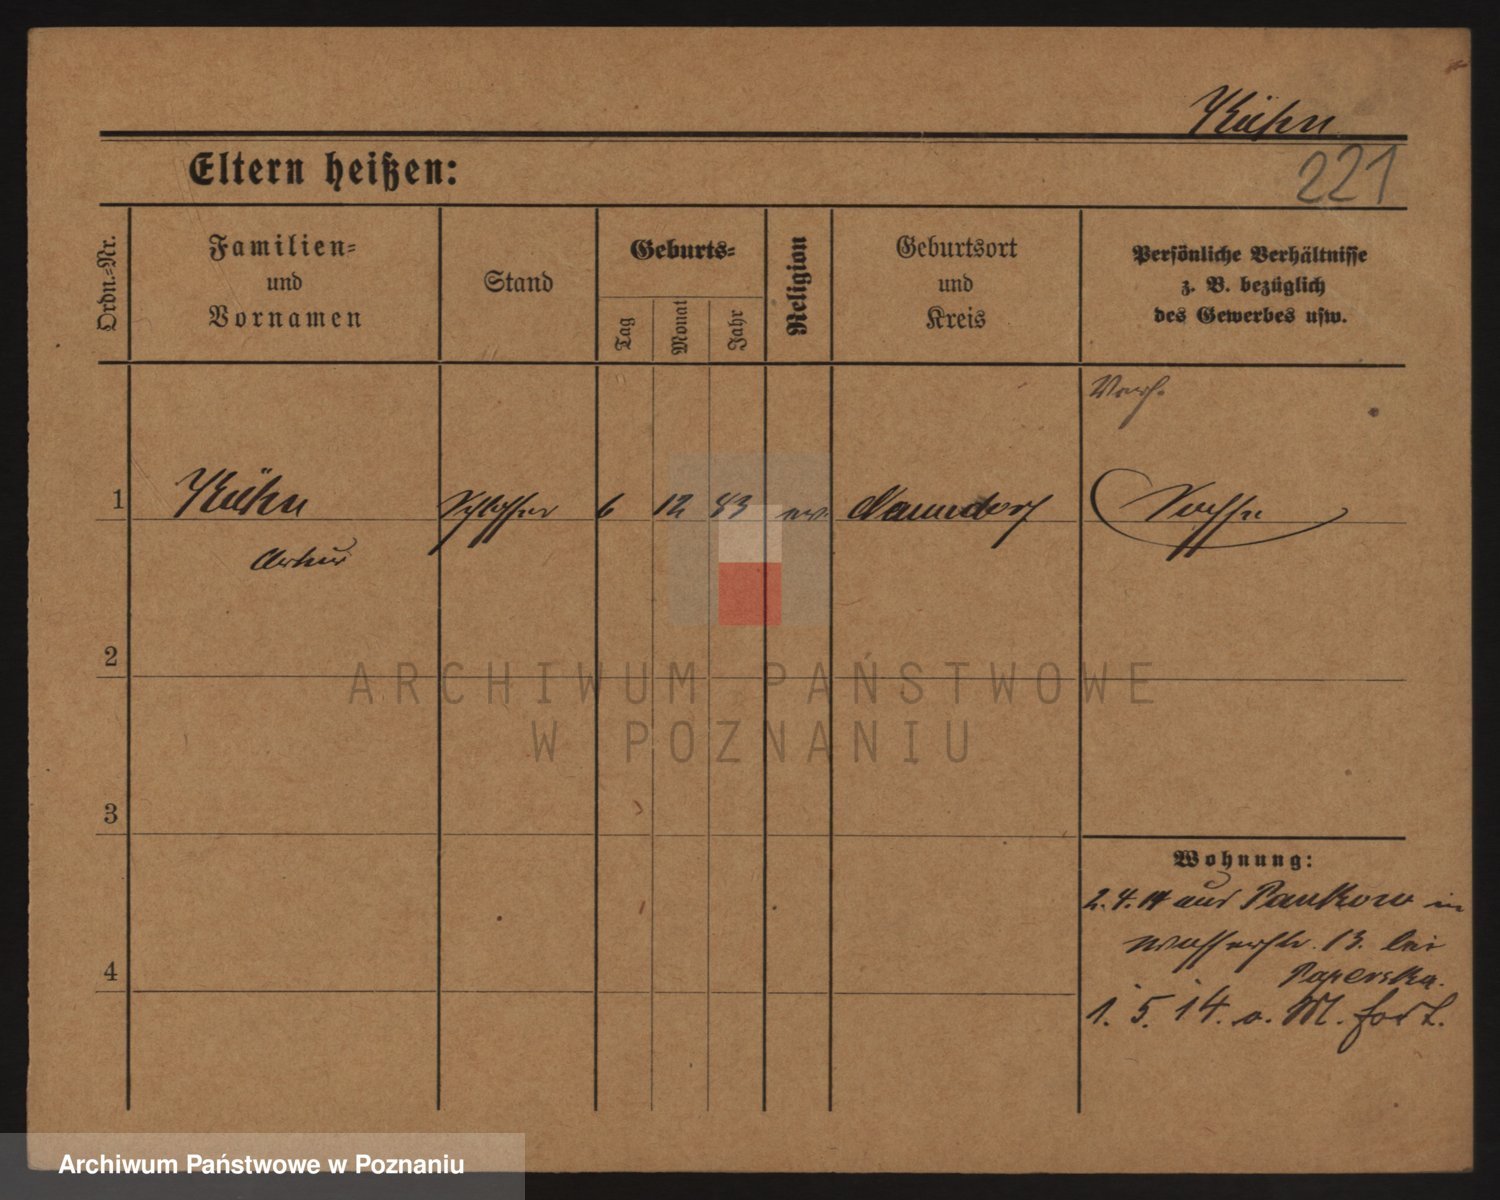 Kühn
221
Eltern heißen:
Ordn.-Nr.
Familien-
und
Vornamen
Stand
Geburts-
Tag
Monat
Jahr
Religion
Geburtsort
und
Kreis
Persönliche Verhältnisse
z. B. bezüglich
des Gewerbes usw.
1
Kühn
Schlosser
6
12
83
ev.
Naundorf
Sachsen
Artur
2
3
4
Wohnung:
2. 4. 14 aus Pankow in
Wasserstr. 13. bei
Paperska.
1. 5. 14. o. M. fort.
ARCHIWUM PAŃSTWOWE
W POZNANIU
Archiwum Państwowe w Poznaniu